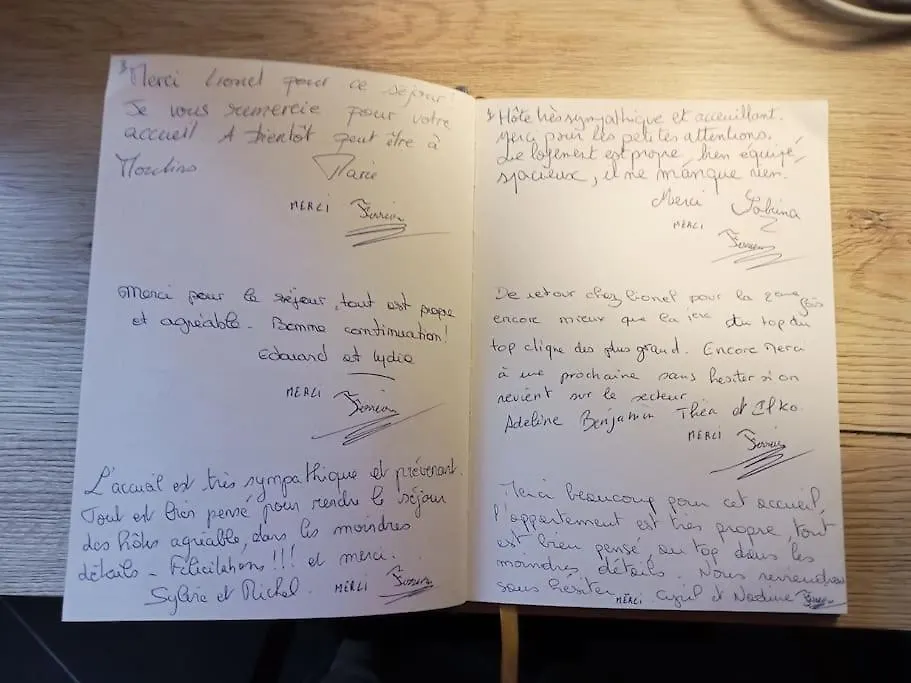 Merci Lionel pour ce séjour!
Je vous remercie pour votre
accueil A bientôt peut être à
Moulins Marie
MERCI
Merci pour le séjour, tout est propre
et agréable. Bonne continuation!
Edouard et Lydie
MERCI
L'accueil est très sympathique et prévenant.
Tout est bien pensé pour rendre le séjour
des hôtes agréable, dans les moindres
détails - Félicitations!!! et merci.
Sylvie et Michel. MERCI
Hôte très sympathique et acceuillant.
Merci pour les petites attentions.
Le logement est propre, bien équipé,
spacieux, il ne manque rien.
Merci Sabrina
MERCI
De retour chez Lionel pour la 2eme fois
encore mieux que la 1ere du top du
top clique des plus grand. Encore Merci
à une prochaine sans hesiter si on
revient sur le secteur
Adeline Benjamin Théa et
MERCI
Merci beaucoup pour cet accueil,
l'appartement est très propre, tout
est bien pensé, au top dans les
moindres détails. Nous reviendrons
sans hésiter MERCI et Nadine